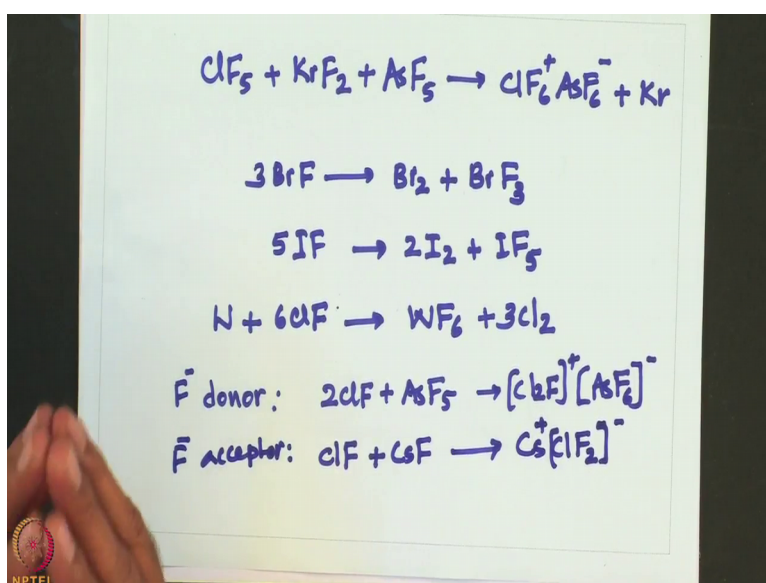 ClF₅ + KrF₂ + AsF₅ → ClF₆⁺ AsF₆⁻ + Kr
3 BrF → Br₂ + BrF₃
5 IF → 2I₂ + IF₅
W + 6ClF → WF₆ + 3Cl₂
F⁻ donor: 2ClF + AsF₅ → [Cl₂F]⁺[AsF₆]⁻
F⁻ acceptor: ClF + CsF → Cs⁺[ClF₂]⁻
NPTEL